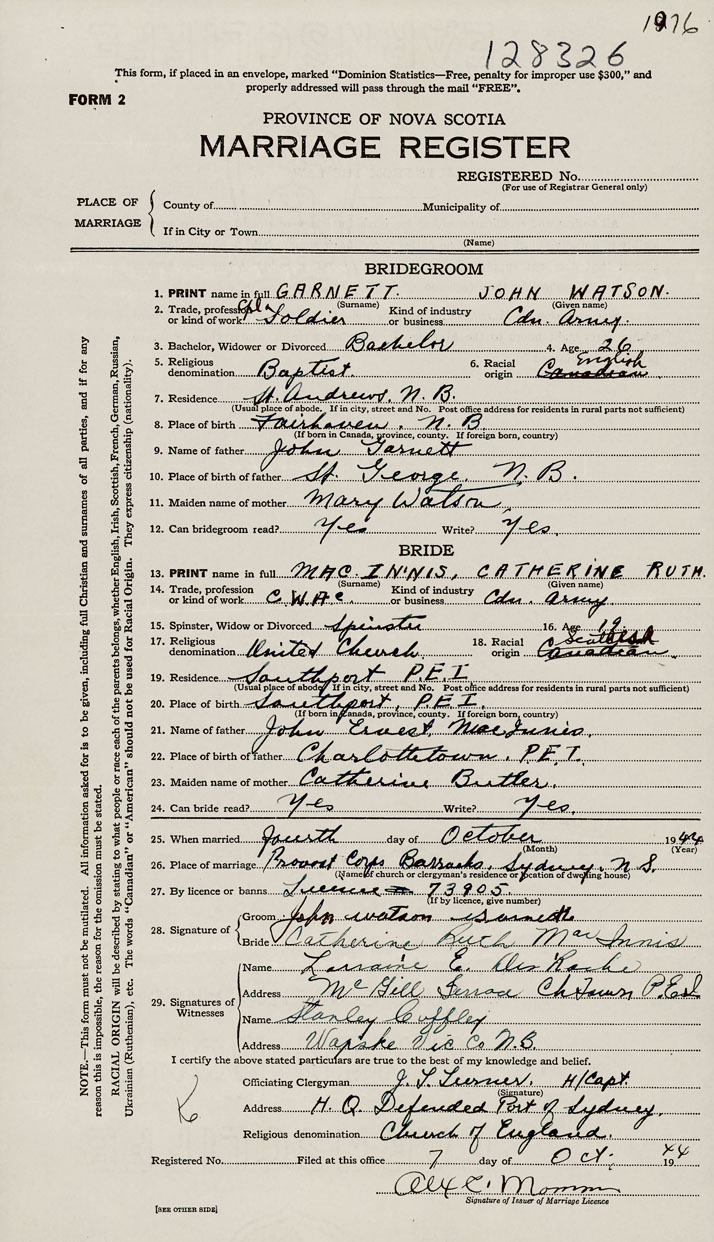 1976
128326
This form, if placed in an envelope, marked "Dominion Statistics—Free, penalty for improper use $300," and
properly addressed will pass through the mail "FREE".
FORM 2
PROVINCE OF NOVA SCOTIA
MARRIAGE REGISTER
REGISTERED No.
(For use of Registrar General only)
PLACE OF MARRIAGE
County of Municipality of
If in City or Town
(Name)
BRIDEGROOM
1. PRINT name in full GARNETT. JOHN WATSON.
(Surname) (Given name)
2. Trade, profession or kind of work Cpl. Soldier Kind of industry or business Cdn. Army.
3. Bachelor, Widower or Divorced Bachelor 4. Age 26
5. Religious denomination Baptist. 6. Racial origin English Canadian
7. Residence St. Andrews, N.B.
(Usual place of abode. If in city, street and No. Post office address for residents in rural parts not sufficient)
8. Place of birth Fairhaven, N.B.
(If born in Canada, province, county. If foreign born, country)
9. Name of father John Garnett
10. Place of birth of father St. George, N.B.
11. Maiden name of mother Mary Watson
12. Can bridegroom read? Yes Write? Yes.
BRIDE
13. PRINT name in full MAC INNIS, CATHERINE RUTH.
(Surname) (Given name)
14. Trade, profession or kind of work C.W.A.C. Kind of industry or business Cdn. Army
15. Spinster, Widow or Divorced Spinster 16. Age 19
17. Religious denomination United Church 18. Racial origin Scottish Canadian
19. Residence Southport P.E.I.
(Usual place of abode. If in city, street and No. Post office address for residents in rural parts not sufficient)
20. Place of birth Southport, P.E.I.
(If born in Canada, province, county. If foreign born, country)
21. Name of father John Ernest MacInnis.
22. Place of birth of father Charlottetown, P.E.I.
23. Maiden name of mother Catherine Butler.
24. Can bride read? Yes Write? Yes.
25. When married fourth day of October 1944
(Month) (Year)
26. Place of marriage Provost Corps Barracks, Sydney, N.S.
(Name of church or clergyman's residence or location of dwelling house)
27. By licence or banns License 73905.
(If by licence, give number)
28. Signature of
Groom John Watson Garnett
Bride Catherine Ruth MacInnis
29. Signatures of Witnesses
Name Lorraine E. DesRoche
Address McGill Ch'town P.E.I
Name Stanley
Address Wapske Vic Co N.B.
I certify the above stated particulars are true to the best of my knowledge and belief.
Officiating Clergyman J. Turner, H/Capt.
(Signature)
Address H. Q. Defended Port of Sydney.
Religious denomination Church of England.
Registered No. Filed at this office 7 day of Oct. 1944
Signature of Issuer of Marriage Licence
[SEE OTHER SIDE]
NOTE.—This form must not be mutilated. All information asked for is to be given, including full Christian and surnames of all parties, and if for any
reason this is impossible, the reason for the omission must be stated.
RACIAL ORIGIN will be described by stating to what people or race each of the parents belongs, whether English, Irish, Scottish, French, German, Russian,
Ukrainian (Ruthenian), etc. The words "Canadian" or "American" should not be used for Racial Origin. They express citizenship (nationality).